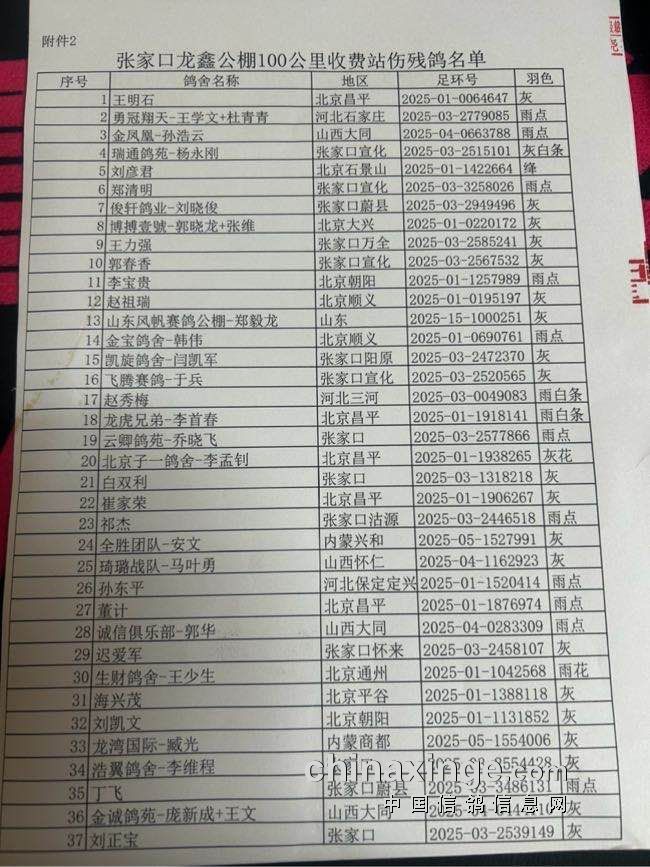 附件2
张家口龙鑫公棚100公里收费站伤残鸽名单
序号 鸽舍名称 地区 足环号 羽色
1 王明石 北京昌平 2025-01-0064647 灰
2 勇冠翔天-王学文+杜青青 河北石家庄 2025-03-2779085 雨点
3 金凤凰-孙浩云 山西大同 2025-04-0663788 雨点
4 瑞通鸽苑-杨永刚 张家口宣化 2025-03-2515101 灰白条
5 刘彦君 北京石景山 2025-01-1422664 绛
6 郑清明 张家口宣化 2025-03-3258026 雨点
7 俊轩鸽业-刘晓俊 张家口蔚县 2025-03-2949496 灰
8 博搏壹號-郭晓龙+张维 北京大兴 2025-01-0220172 灰
9 王力强 张家口万全 2025-03-2585241 灰
10 郭春香 张家口宣化 2025-03-2567532 灰
11 李宝贵 北京朝阳 2025-01-1257989 雨点
12 赵祖瑞 北京顺义 2025-01-0195197 灰
13 山东风帆赛鸽公棚-郑毅龙 山东 2025-15-1000251 灰
14 金宝鸽舍-韩伟 北京顺义 2025-01-0690761 雨点
15 凯旋鸽舍-闫凯军 张家口阳原 2025-03-2472370 灰
16 飞腾赛鸽-于兵 张家口宣化 2025-03-2520565 灰
17 赵秀梅 河北三河 2025-03-0049083 雨白条
18 龙虎兄弟-李首春 北京昌平 2025-01-1918141 雨白条
19 云卿鸽苑-乔晓飞 张家口 2025-03-2577866 雨点
20 北京子一鸽舍-李孟钊 北京昌平 2025-01-1938265 灰花
21 白双利 张家口 2025-03-1318218 灰
22 崔家荣 北京昌平 2025-01-1906267 灰
23 祁杰 张家口沽源 2025-03-2446518 雨点
24 全胜团队-安文 内蒙兴和 2025-05-1527991 灰
25 琦璐战队-马叶勇 山西怀仁 2025-04-1162923 灰
26 孙东平 河北保定定兴 2025-01-1520414 雨点
27 董计 北京昌平 2025-01-1876974 雨点
28 诚信俱乐部-郭华 山西大同 2025-04-0283309 雨点
29 迟爱军 张家口怀来 2025-03-2458107 灰
30 生财鸽舍-王少生 北京通州 2025-01-1042568 雨花
31 海兴茂 北京平谷 2025-01-1388118 灰
32 刘凯文 北京朝阳 2025-01-1131852 灰
33 龙湾国际-臧光 内蒙商都 2025-05-1554006 灰
34 浩翼鸽舍-李维程 灰
35 丁飞 张家口蔚县 2025-03-3486131 雨点
36 金诚鸽苑-庞新成+王文 山西大同 灰
37 刘正宝 张家口 2025-03-2539149 灰
chinaxinge.com
中国信鸽信息网